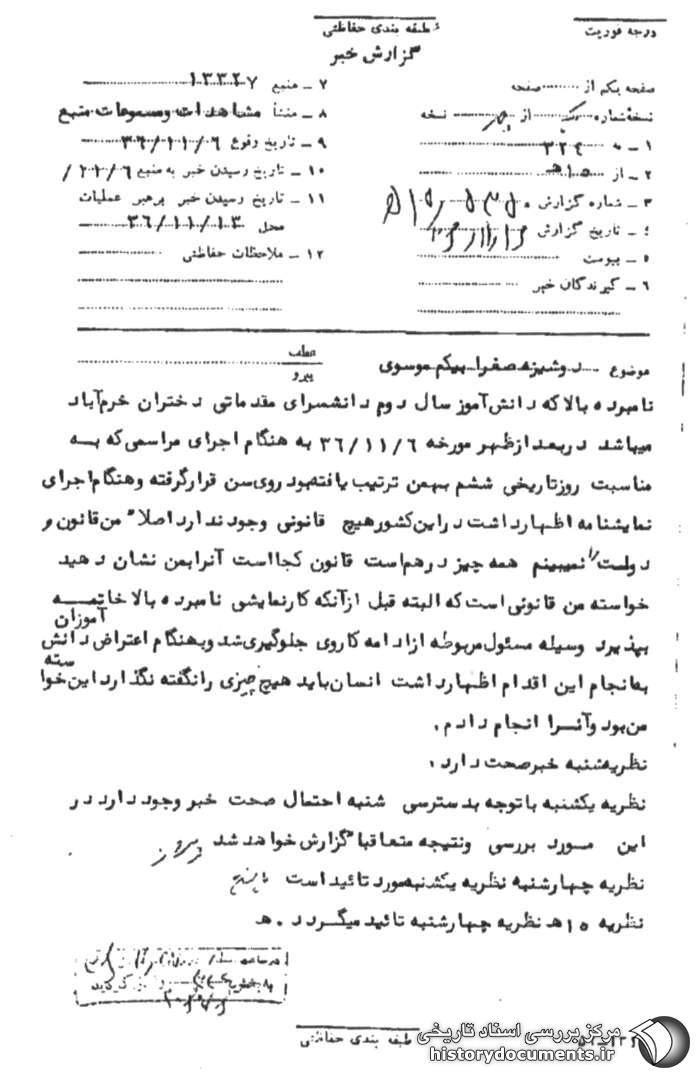 درجه فوریت
طبقه بندی حفاظتی
گزارش خبر
صفحه یکم از صفحه
نسخه شماره از نسخه
۱ - به ۳۲۴
۲ - از ۱۵ هـ
۳ - شماره گزارش
۴ - تاریخ گزارش
۵ - پیوست
۶ - گیرندگان خبر
۷ - منبع ۱۳۳۲۷
۸ - منشأ مشاهدات و مسموعات منبع
۹ - تاریخ وقوع ۳۶/۱۱/۶
۱۰ - تاریخ رسیدن خبر به منبع ۱۱/۶/
۱۱ - تاریخ رسیدن خبر برهبر عملیات
محل ۳۶/۱۱/۱۳
۱۲ - ملاحظات حفاظتی
موضوع دوشیزه صغرا بیگم موسوی
عطف
پیرو
نامبرده بالا که دانش آموز سال دوم دانشسرای مقدماتی دختران خرم آباد
میباشد در بعد از ظهر مورخه ۳۶/۱۱/۶ به هنگام اجرای مراسمی که به
مناسبت روز تاریخی ششم بهمن ترتیب یافته بود روی سن قرار گرفته و هنگام اجرای
نمایشنامه اظهار داشت در این کشور هیچ قانونی وجود ندارد اصلا" من قانون و
دولت را نمیبینم همه چیز در هم است قانون کجا است آنرا بمن نشان دهید
خواسته من قانونی است که البته قبل از آنکه کار نمایشی نامبرده بالا خاتمه
بپذیرد وسیله مسئول مربوطه از ادامه کار وی جلوگیری شد و بهنگام اعتراض دانش آموزان
به انجام این اقدام اظهار داشت انسان باید هیچ چیزی را نگفته نگذارد این خواسته
من بود و آنرا انجام دادم.
نظریه شنبه خبر صحت دارد.
نظریه یکشنبه با توجه بدسترسی شنبه احتمال صحت خبر وجود دارد در
این مورد بررسی و نتیجه متعاقبا" گزارش خواهد شد
نظریه چهارشنبه نظریه یکشنبه مورد تائید است
نظریه ۱۵ هـ نظریه چهارشنبه تائید میگردد . هـ
طبقه بندی حفاظتی
مرکز بررسی اسناد تاریخی
historydocuments.ir